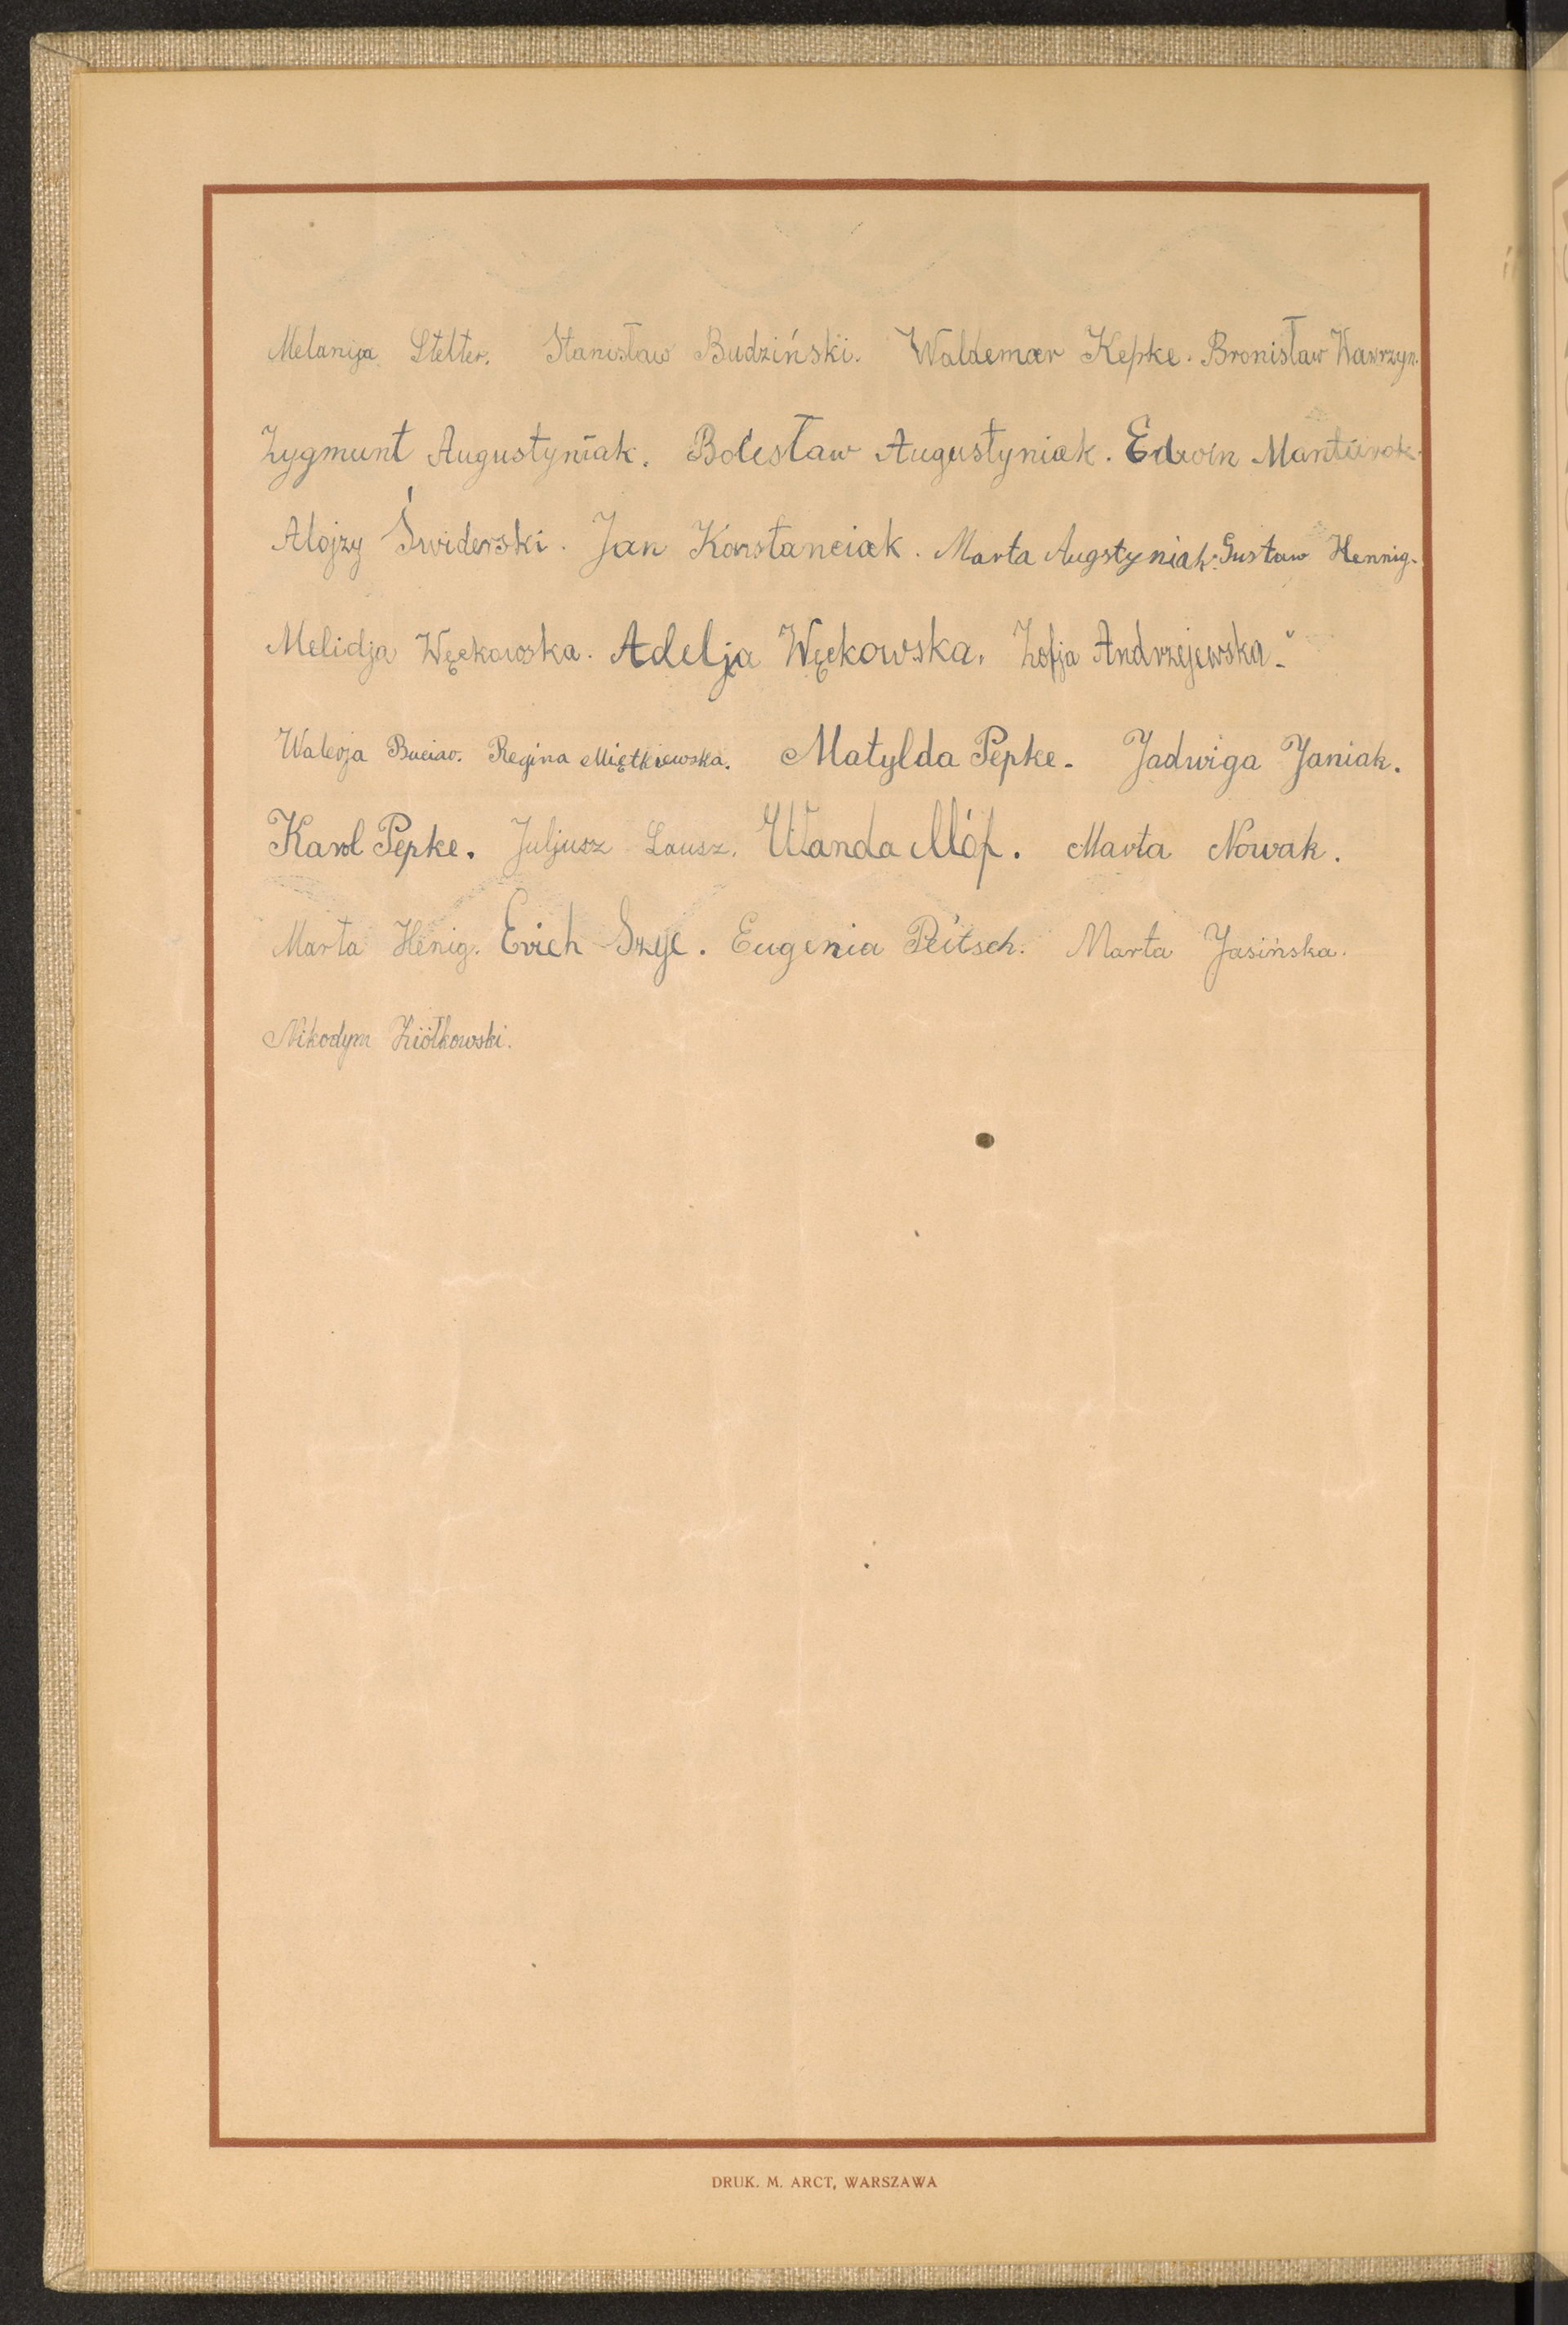 Melanija Stelter. Stanisław Budziński. Waldemar Kepke. Bronisław Wawrzyn.
Zygmunt Augustyniak. Bolesław Augustyniak. Edwin
Alojzy Świderski. Jan Konstanciak. Marta Augstyniak. Gustaw Hennig.
Melidja Węckowska. Adelja Węckowska. Zofja Andrzejewska.
Walerja Regina Miętkiewska. Matylda Pepke. Jadwiga Janiak.
Karol Pepke. Juljusz Lausz. Wanda Móf. Marta Nowak.
Marta Henig. Erich Szyc. Eugenia Peitsch. Marta Jasińska.
Nikodym Ziółkowski.
DRUK. M. ARCT, WARSZAWA